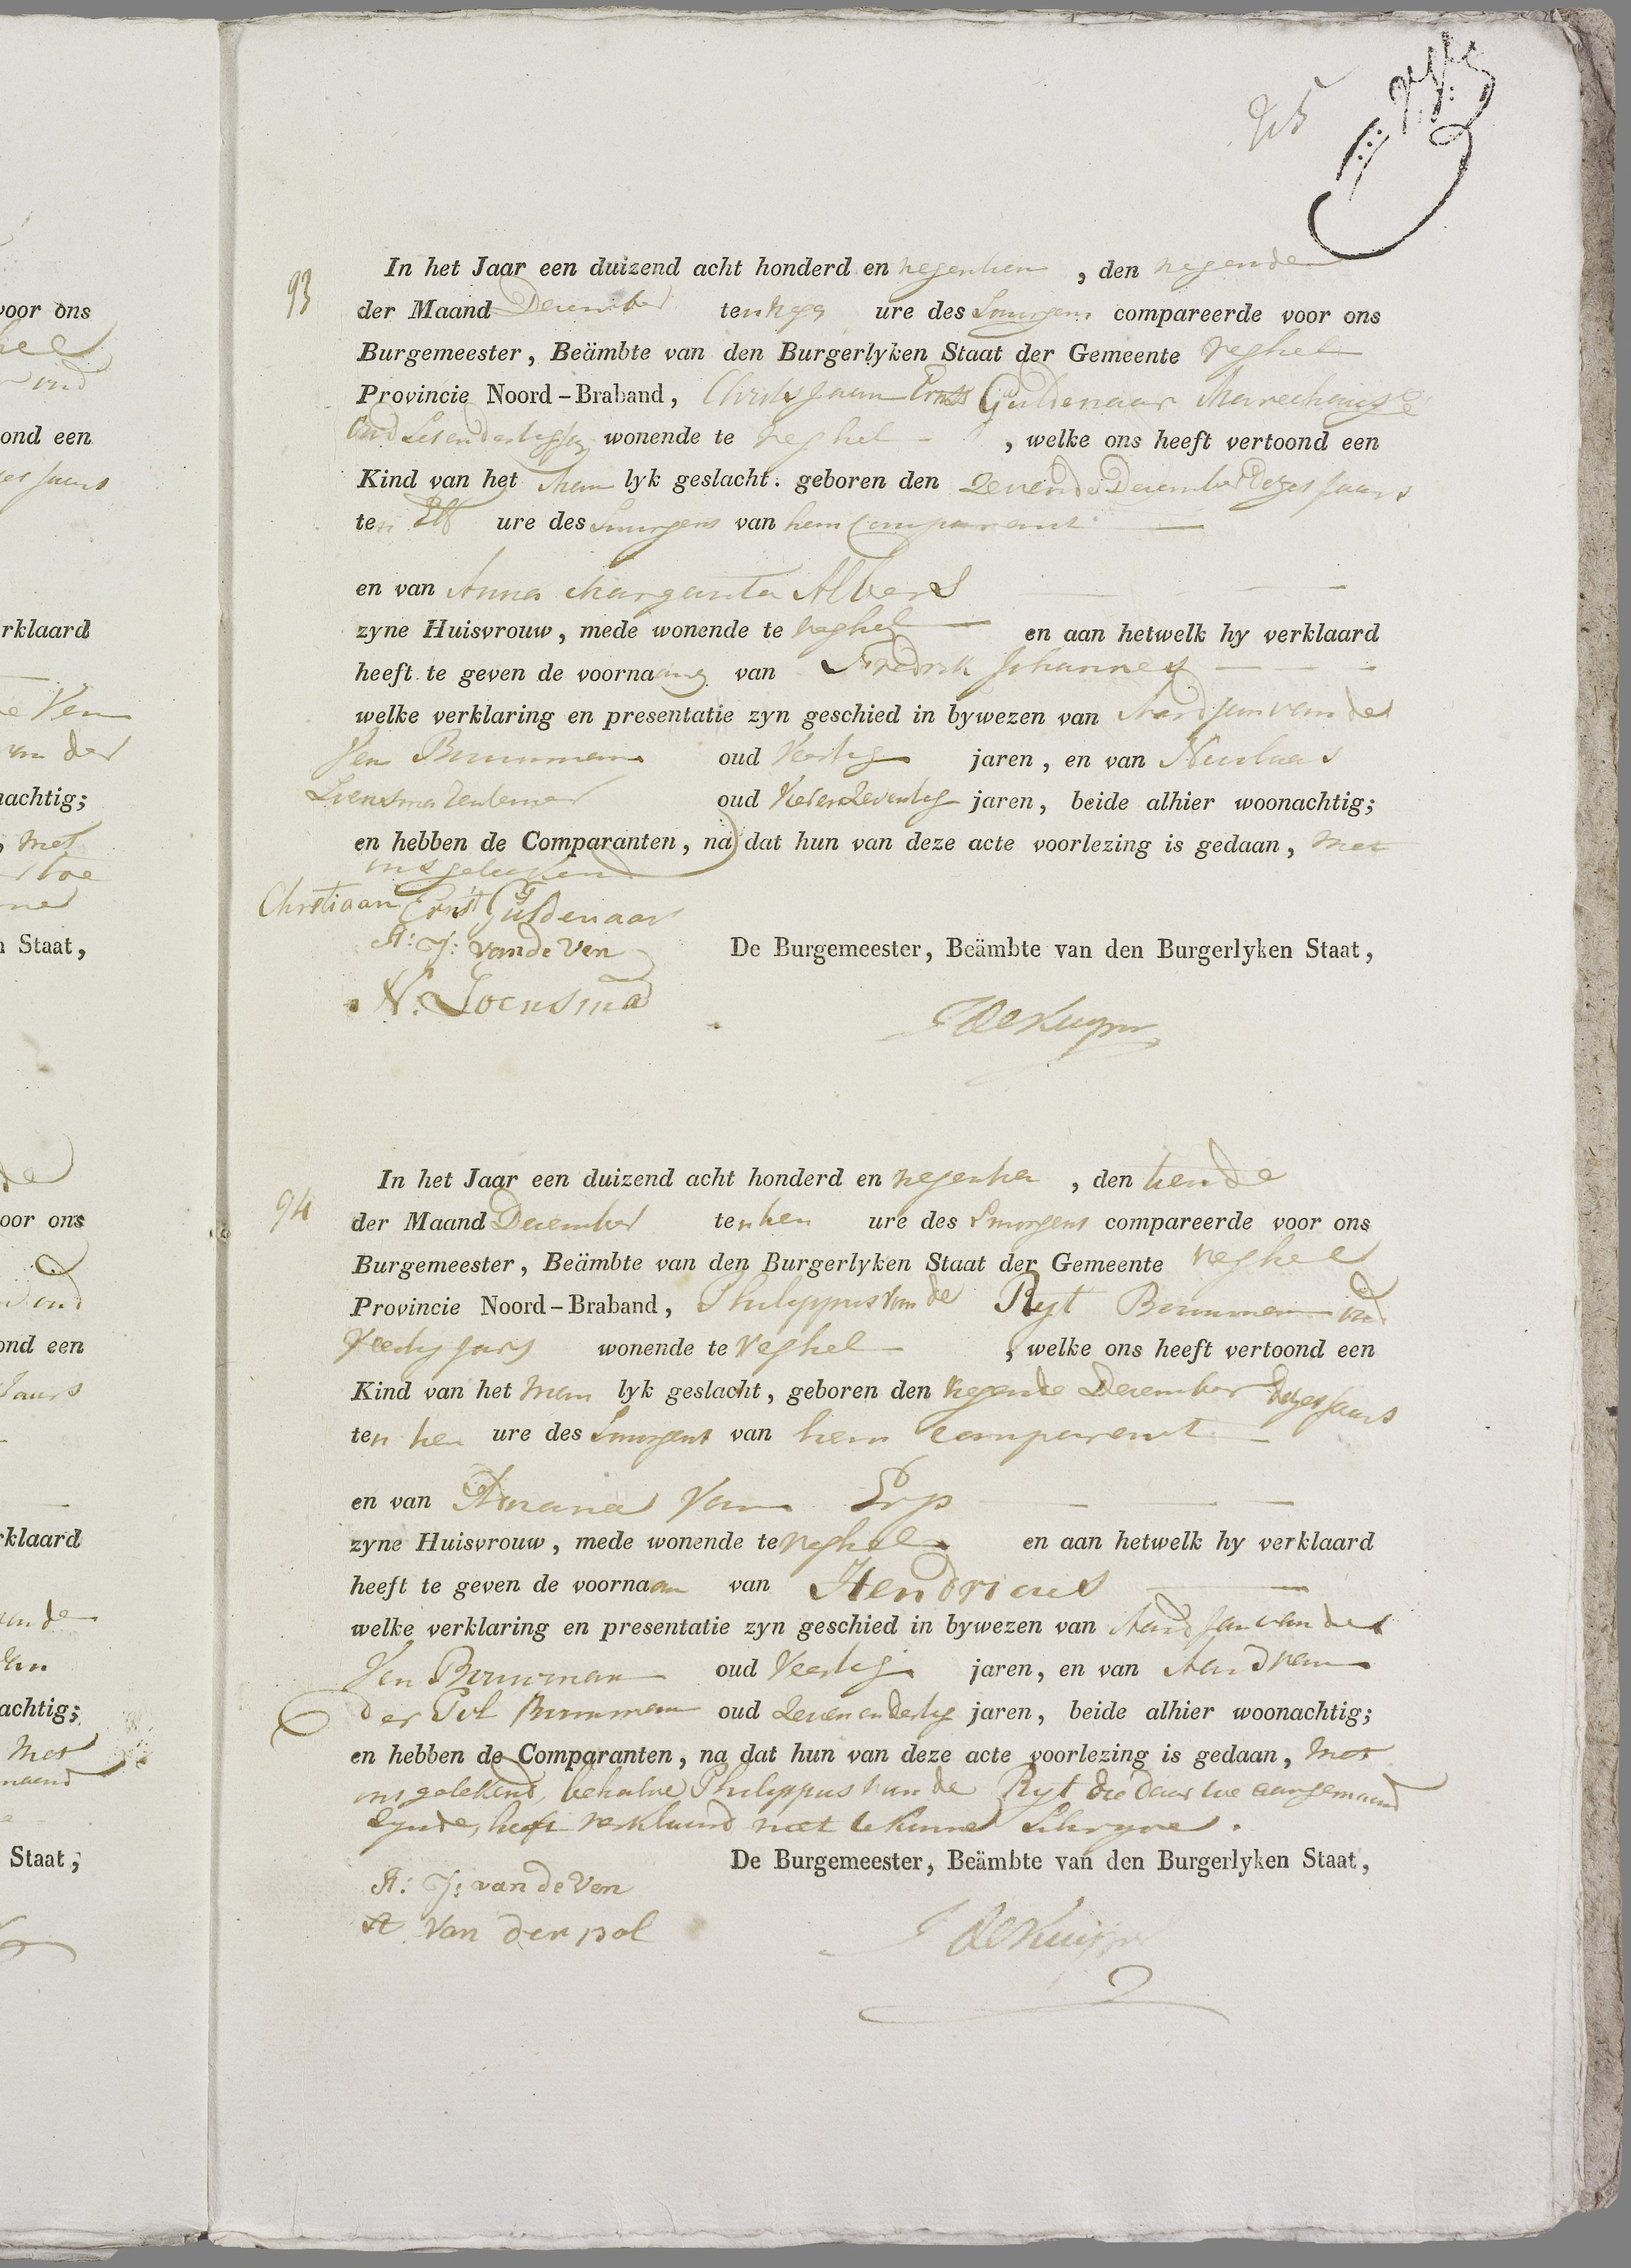 voor ons
ond een
rklaard
e Ven
van der
nachtig;
, met
n Staat,
oor ons
ond een
Jaars
rklaard
achtig;
met
Staat,
25
93
In het Jaar een duizend acht honderd en negentien , den negende
der Maand December ten ure des Smorgens compareerde voor ons
Burgemeester, Beämbte van den Burgerlyken Staat der Gemeente Veghel
Provincie Noord-Braband, Christiaan Ernst Guldenaar Marechaussé
Oud wonende te Veghel , welke ons heeft vertoond een
Kind van het Man lyk geslacht. geboren den Zevende December dezes Jaars
ten Elf ure des Smorgens van hem Comparant
en van Anna Margarita Albers
zyne Huisvrouw, mede wonende te Veghel en aan hetwelk hy verklaard
heeft te geven de voornaam van Fredrik Johannes
welke verklaring en presentatie zyn geschied in bywezen van Aard Jan van de
Ven Bouwman oud Veertig jaren, en van Nicolaas
Loensma oud jaren, beide alhier woonachtig;
en hebben de Comparanten, na dat hun van deze acte voorlezing is gedaan, met
ons getekend
Christiaan Ernst Guldenaar
A: J: van de Ven
N. Loensma
De Burgemeester, Beämbte van den Burgerlyken Staat,
J de Kuyper
94
In het Jaar een duizend acht honderd en negentien , den tiende
der Maand December ten tien ure des Smorgens compareerde voor ons
Burgemeester, Beämbte van den Burgerlyken Staat der Gemeente Veghel
Provincie Noord-Braband, Philippus van de Ryt Bouwman oud
Veertig Jaren wonende te Veghel , welke ons heeft vertoond een
Kind van het Man lyk geslacht, geboren den Negende December dezes Jaars
ten tien ure des Smorgens van hem Comparant
en van Adriana Van Erp
zyne Huisvrouw, mede wonende te Veghel en aan hetwelk hy verklaard
heeft te geven de voornaam van Hendricus
welke verklaring en presentatie zyn geschied in bywezen van Aard Jan van de
Ven Bouwman oud Veertig jaren, en van Aard van
der Pol Bouwman oud Zeven en dertig jaren, beide alhier woonachtig;
en hebben de Comparanten, na dat hun van deze acte voorlezing is gedaan, met
ons getekend, behalve Philippus van de Ryt die daar toe aangemaand
zynde, heeft verklaard niet te kunne Schryve.
De Burgemeester, Beämbte van den Burgerlyken Staat,
A: J: van de Ven
A Van der pol
J de Kuijper